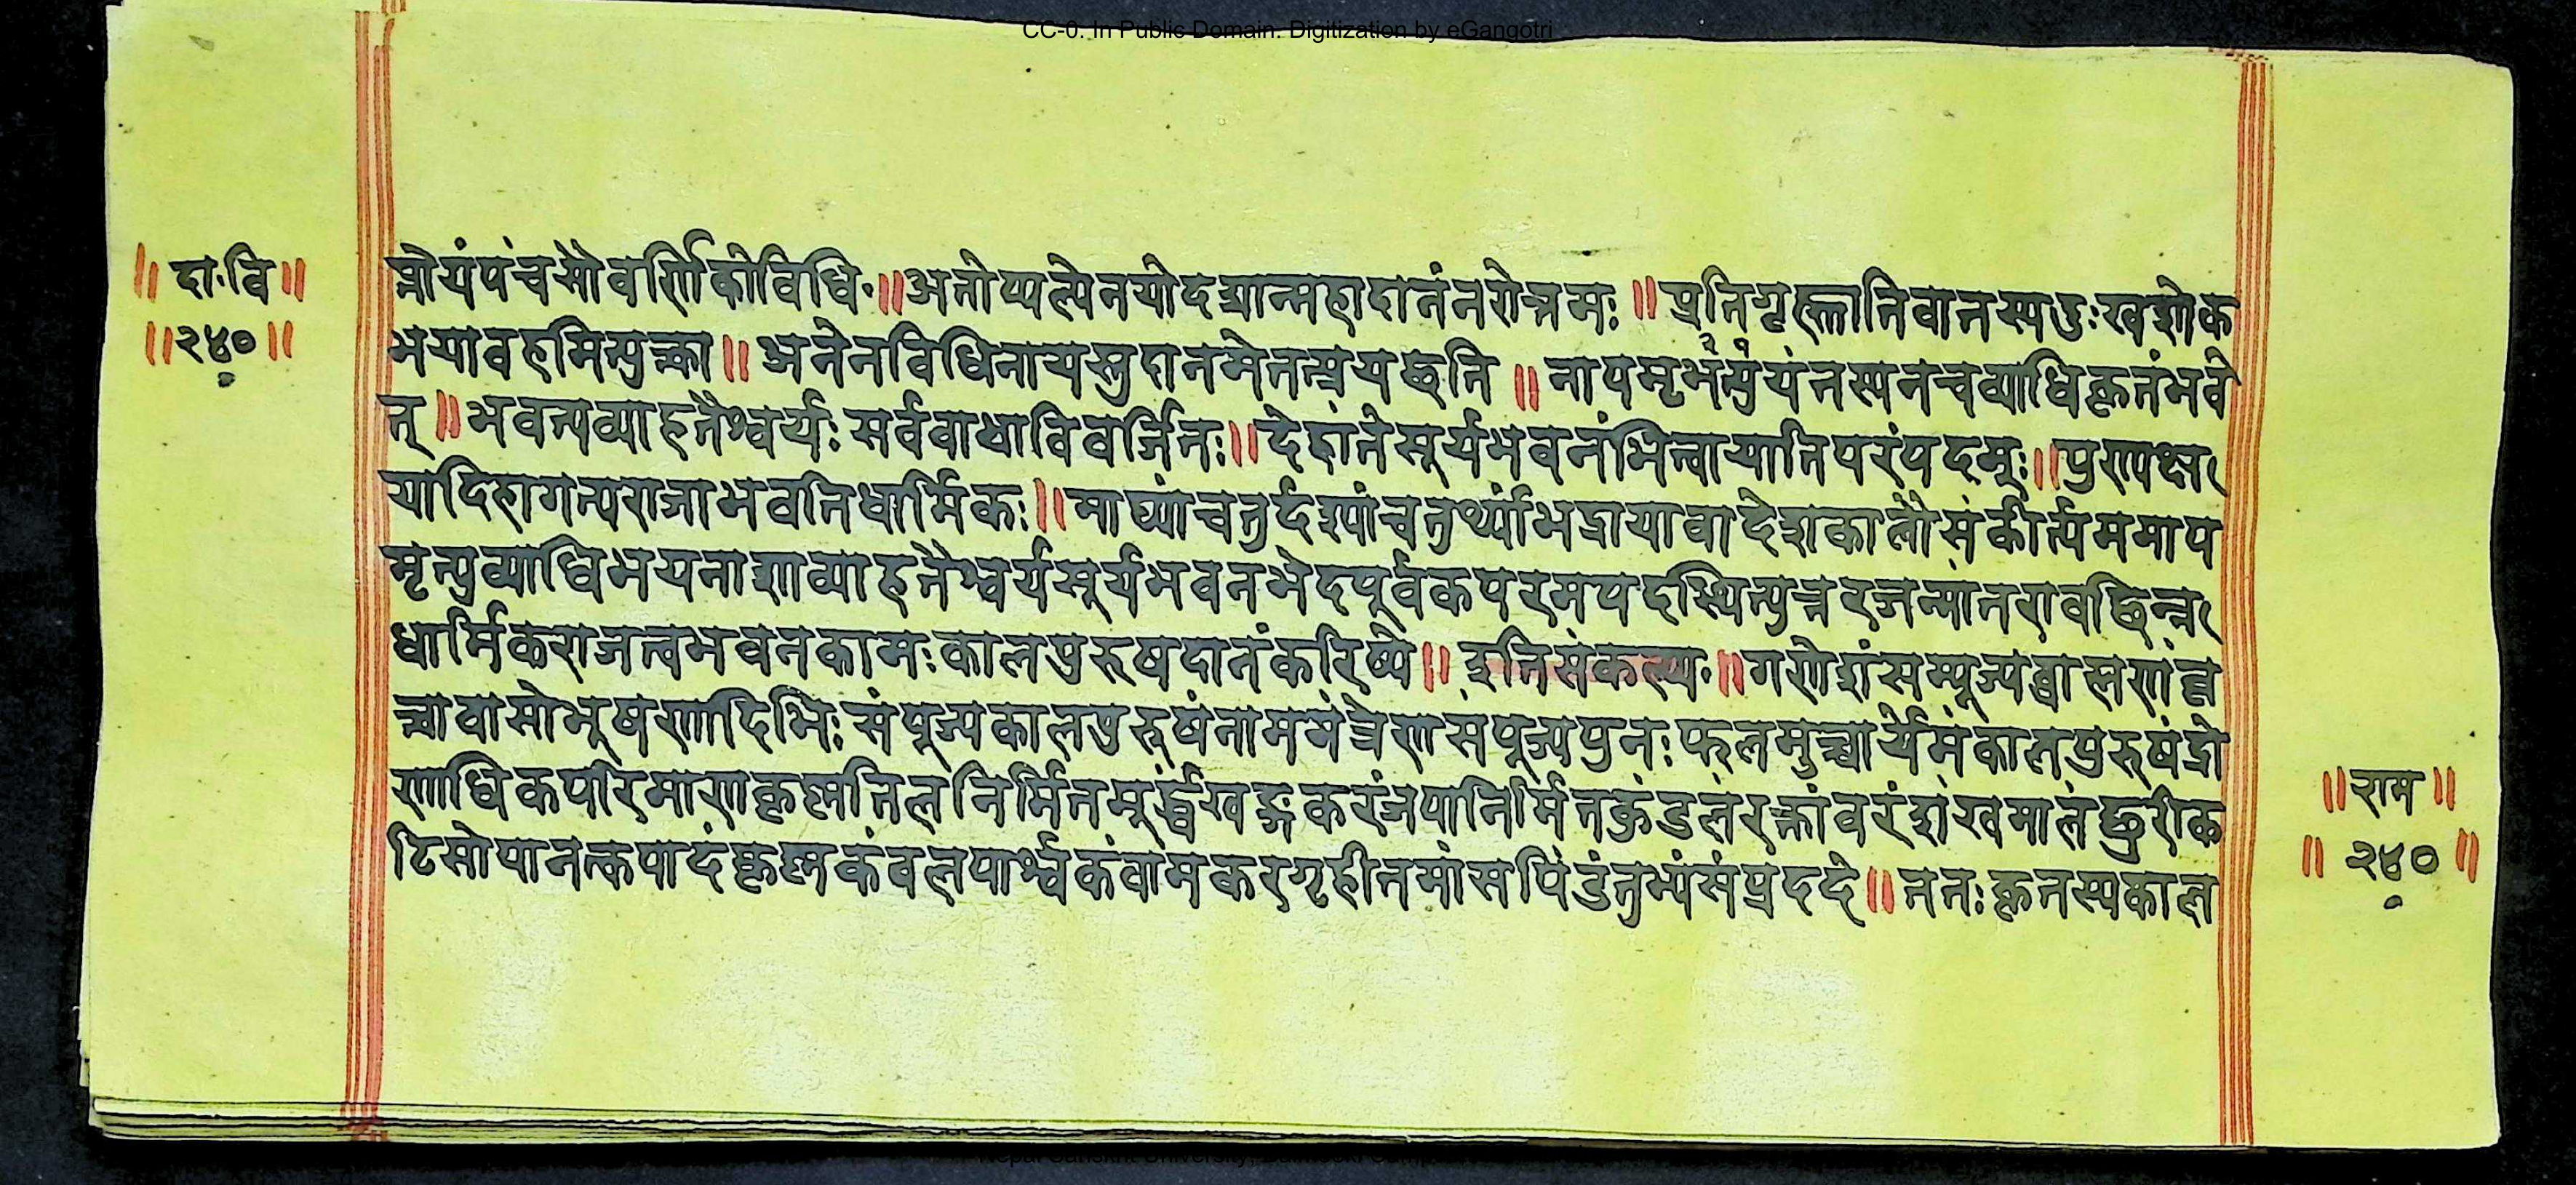 CC-0. In Public Domain. Digitization by eGangotri
॥ दा॰वि ॥
॥२४०॥
क्तोयंपंचसौवर्णिकोविधिः॥अतोप्यल्पेनयोदद्यान्महादानंनरोत्तमः ॥प्रतिगृह्णातिवातस्यदुःखशोक
भयावहमित्युक्त्वा॥ अनेनविधिनायस्तुदानमेतत्प्रयच्छति ॥ नापमृत्युभयंतस्यनचव्याधिकृतंभवे
त्॥भवत्यव्याहतैश्वर्यः सर्ववाधाविवर्जितः॥ देहांतेसूर्यभवनंभित्वायातिपरंपदम्ः॥पुण्यक्ष
यादिहागत्यराजाभवतिधार्मिकः॥माघ्यांचतुर्दश्यांचतुर्थ्यांभद्रायावादेशकालौसंकीर्त्यममाप
मृत्युव्याधिभयनाशाव्याहतैश्वर्यसूर्यभवनभेदपूर्वकपरमपदस्थित्युत्तरजन्मांतरावछिन्न
धार्मिकराजत्वभवनकामःकालपुरुषदानंकरिष्ये॥ इतिसंकल्प्य॰॥गणेशंसम्पूज्यब्राह्मणंवृ
त्वावासोभूषणादिभिः संपूज्यकालपुरुषंनाममंत्रेणसंपूज्यपुनः फलमुच्चार्येमंकालपुरुषंद्रो
णाधिकपरिमाणकृष्णतिलनिर्मितमूर्द्ध्वखड्गकरंजपानिर्मितकुंडलंरक्तांवरंशंखमालंछुरीक
टिसोपानत्कपादंकृष्णकंवलपार्श्वकंवामकरगृहीतमांसपिंडंतुभ्यंसंप्रददे॥ ततः कृतस्यकाल
॥राम॥
॥ २४० ॥